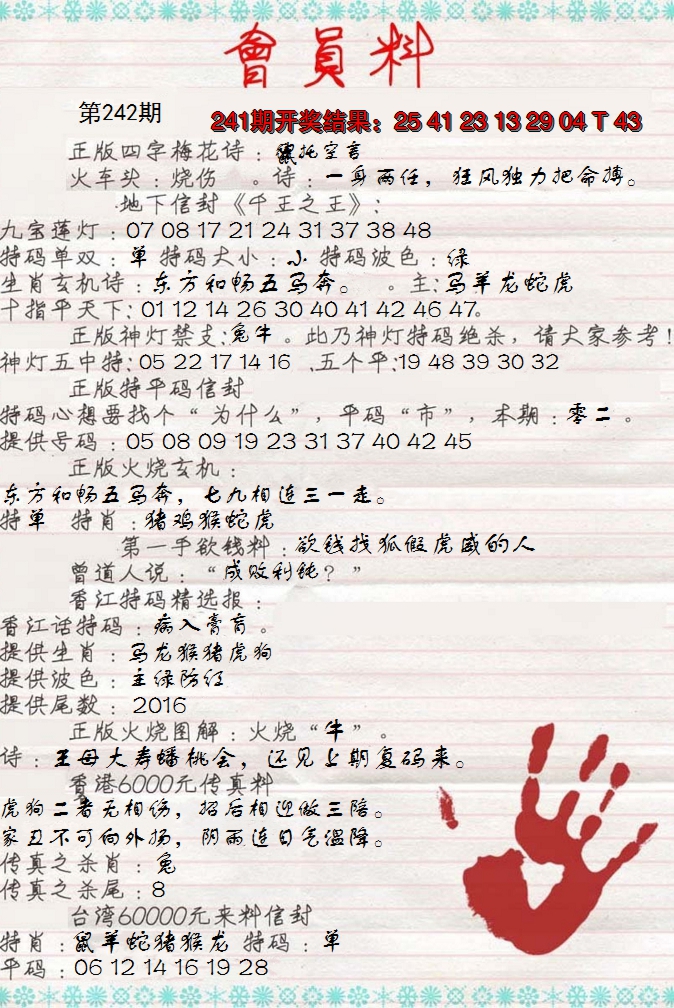 會員料
第242期
241期开奖结果：25 41 23 13 29 04 T 43
正版四字梅花诗：托空言
火车头：烧伤 。诗：一身两任，狂风独力把命搏。
地下信封《千王之王》：
九宝莲灯：07 08 17 21 24 31 37 38 48
特码单双：单 特码大小：小 特码波色：绿
生肖玄机诗：东方和畅五马奔。 。主：马羊龙蛇虎
十指平天下：01 12 14 26 30 40 41 42 46 47。
正版神灯禁支：兔牛 。此乃神灯特码绝杀，请大家参考！
神灯五中特：05 22 17 14 16 .五个平：19 48 39 30 32
正版特平码信封
特码心想要找个“为什么”，平码“市”，本期：零二 。
提供号码：05 08 09 19 23 31 37 40 42 45
正版火烧玄机：
东方和畅五马奔，七九相连三一走。
特单 特肖：猪鸡猴蛇虎
第一手欲钱料：欲钱找狐假虎威的人
曾道人说：“成败利钝？”
香江特码精选报：
香江话特码：病入膏肓。
提供生肖：马龙猴猪虎狗
提供波色：主绿防红
提供尾数：2016
正版火烧图解：火烧“牛”。
诗：王母大寿蟠桃会，还见上期复码来。
香港6000元传真料
虎狗二者无相伤，招后相迎做三陪。
家丑不可向外扬，阴雨连日气温降。
传真之杀肖：兔
传真之杀尾：8
台湾60000元来料信封
特肖：鼠羊蛇猪猴龙 特码：单
平码：06 12 14 16 19 28